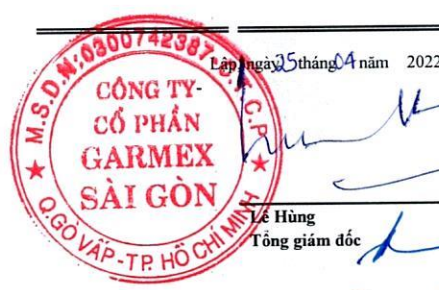 Lập ngày 25 tháng 04 năm 2022
M.S.D.N:0300742387-C.T.C.P
CÔNG TY-
CỔ PHẦN
GARMEX
SÀI GÒN
Q.GÒ VẤP-TP. HỒ CHÍ MINH
Lê Hùng
Tổng giám đốc